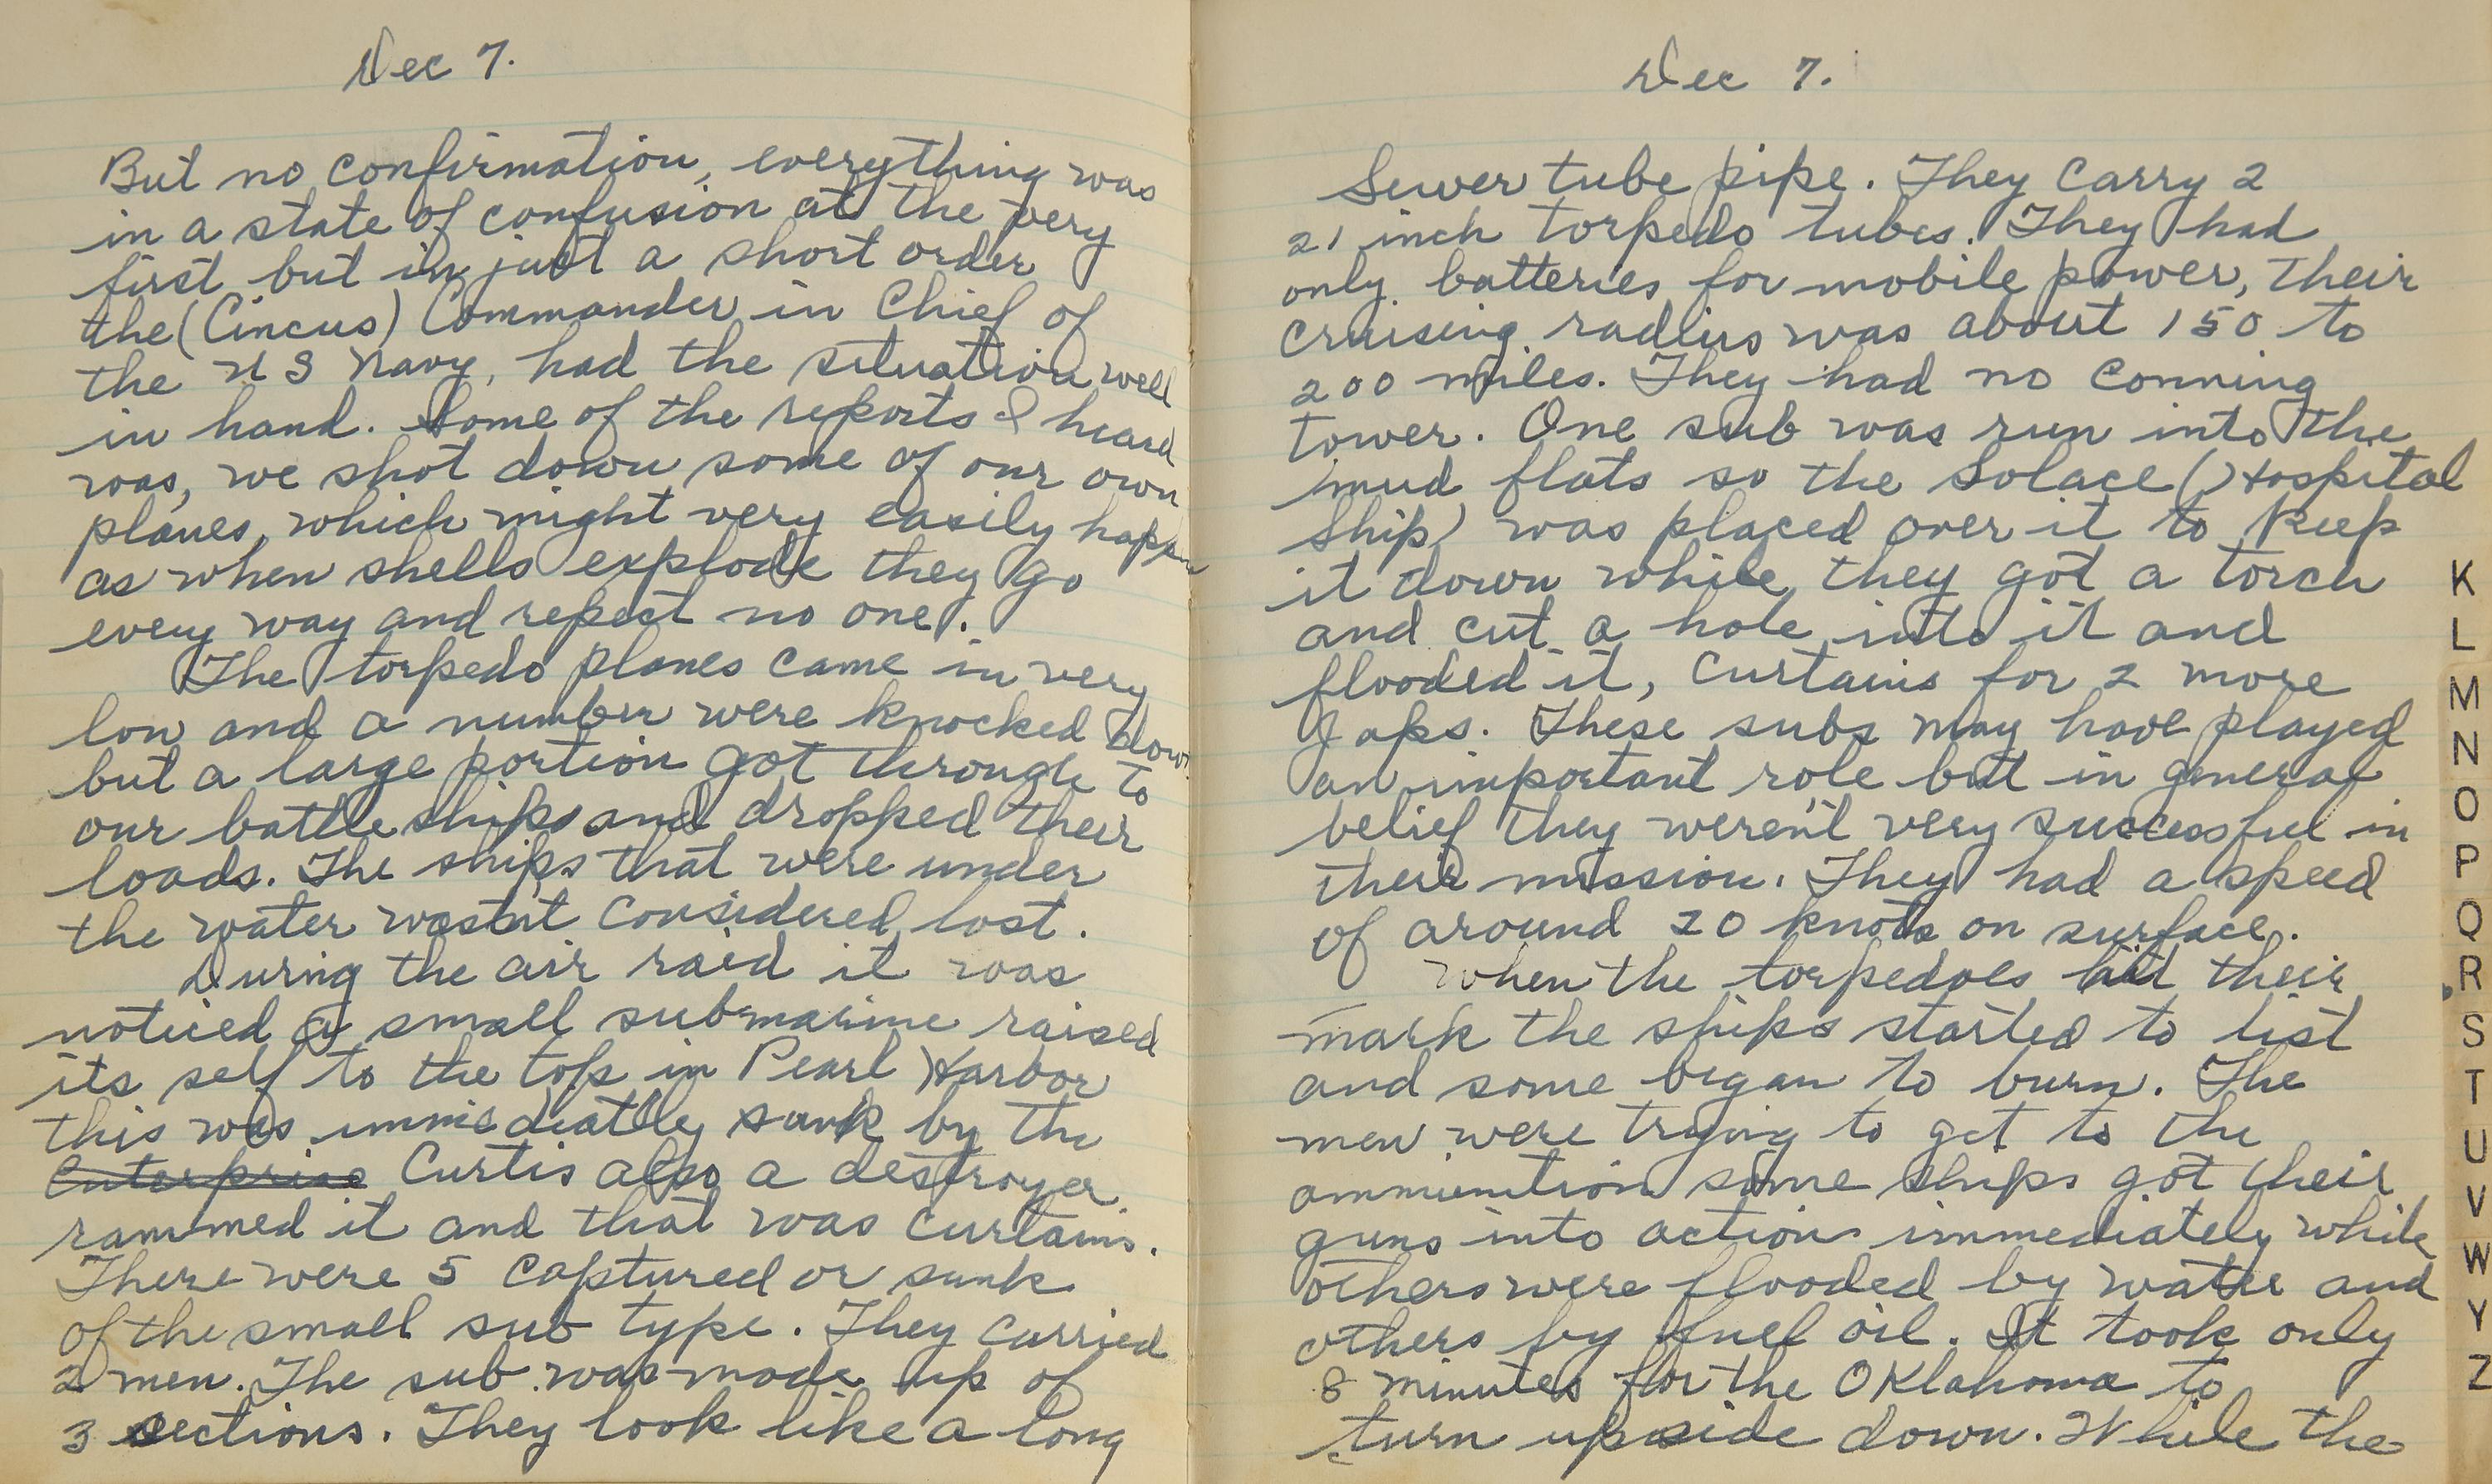 Dec 7.
But no confirmation, everything was
in a state of confusion at the very
first but in just a short order
the (Cincus) Commander in Chief of
the U S Navy, had the situation well
in hand. Some of the reports I heard
was, we shot down some of our own
planes, which might very easily happen
as when shells explode they go
every way and repect no one.
The torpedo planes came in very
low and a number were knocked down
but a large portion got through to
our battleships and dropped their
loads. The ships that were under
the water wasn't considered lost.
During the air raid it was
noticed a small submarine raised
its self to the top in Pearl Harbor
this was immediatly sank by the
Enterprise Curtis also a destroyer
rammed it and that was curtains.
There were 5 captured or sunk
of the small sub type. They carried
2 men. The sub was made up of
3 sections. They look like a long
Dec 7.
Sewer tube pipe. They carry 2
21 inch torpedo tubes. They had
only batteries for mobile power, their
cruising radius was about 150 to
200 miles. They had no conning
tower. One sub was run into the
mud flats so the Solace () Hospital
Ship) was placed over it to keep
it down while they got a torch
and cut a hole into it and
flooded it, curtains for 2 more
Japs. These subs may have played
an important role but in general
belief they weren't very successful in
their mission. They had a speed
of around 20 knots on surface.
When the torpedoes hit their
mark the ships started to list
and some began to burn. The
men were trying to get to the
ammunition some ships got their
guns into action immediately while
others were flooded by water and
others by fuel oil. It took only
8 minutes for the Oklahoma to
turn upside down. While the
K
L
M
N
O
P
Q
R
S
T
U
V
W
Y
Z